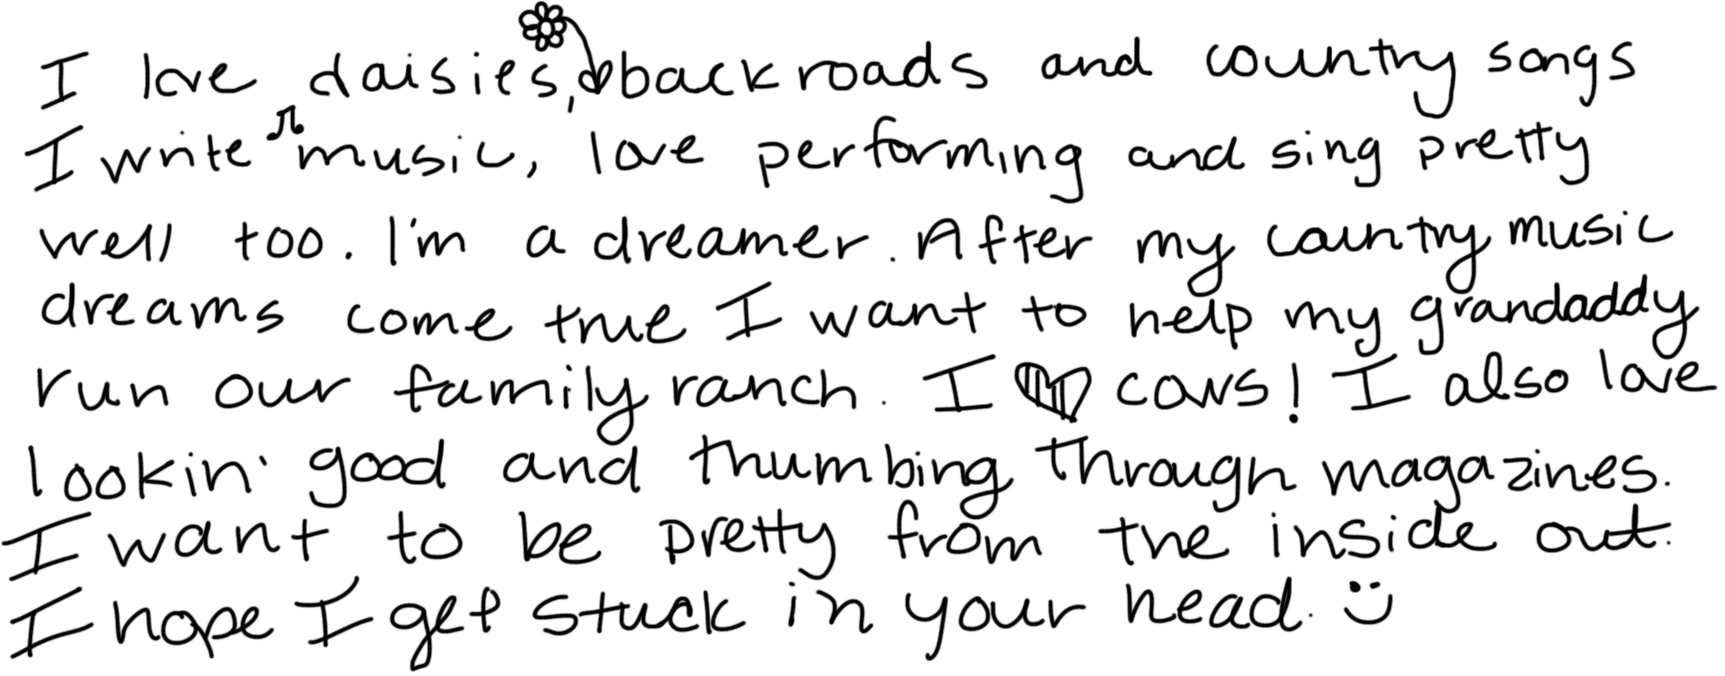 I love daisies, backroads and country songs
I write music, love performing and sing pretty
well too. I'm a dreamer. After my country music
dreams come true I want to help my grandaddy
run our family ranch. I ♥ cows! I also love
lookin' good and thumbing through magazines.
I want to be pretty from the inside out.
I hope I get stuck in your head. :)